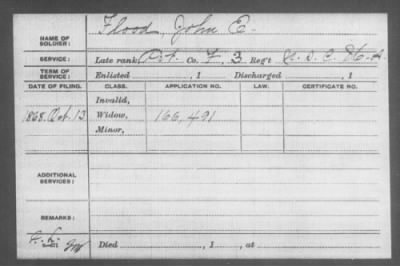 NAME OF SOLDIER: Flood, John E.
SERVICE: Late rank, Pt. Co. F, 3 Reg't U. S. C. H. A.
TERM OF SERVICE: Enlisted , 1 Discharged , 1
DATE OF FILING. CLASS. APPLICATION NO. LAW. CERTIFICATE NO.
Invalid,
1868. Oct. 13 Widow, 166,491
Minor,
ADDITIONAL SERVICES:
REMARKS:
Died , 1 , at